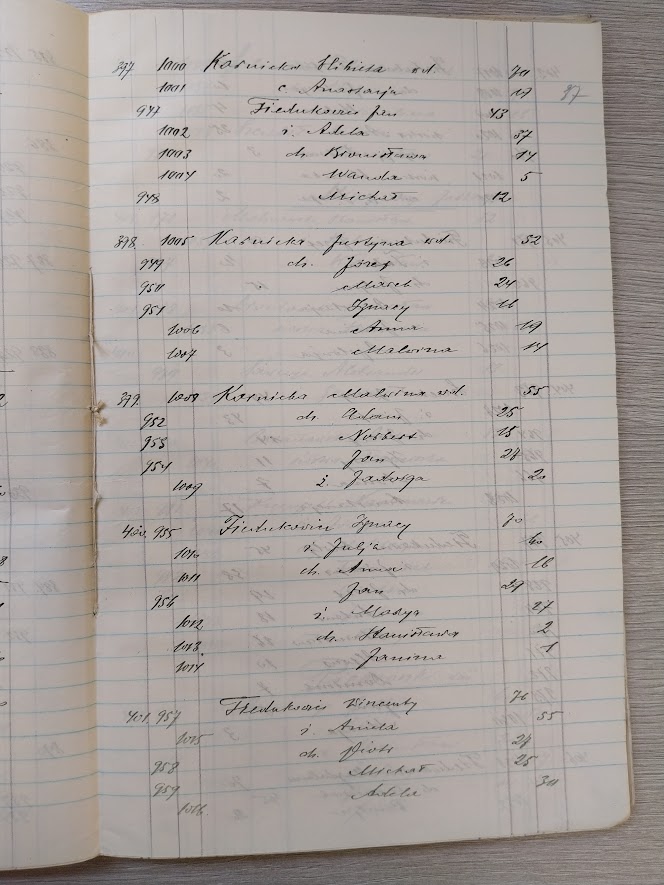 397 1000 Kaśnicka Elżbieta wd. 70
1001 c. Anastazja 17
87
947 Fiedukowicz Jan 43
1002 ż. Adela 37
1003 dz. Bronisława 14
1004 Wanda 5
948 Michał 12
398 1005 Kaśnicka Justyna wd. 52
949 dz. Józef 26
950 Marek 24
951 Ignacy 16
1006 Anna 19
1007 Malwina 14
399 1008 Kaśnicka Malwina wd. 55
952 dz. Adam 25
953 Norbert 15
954 Jan 27
1009 ż. Jadwiga 20
400 955 Fiedukowicz Ignacy 70
1010 ż. Julja 60
1011 dz. Anna 16
956 Jan 29
1012 ż. Marya 27
1013 dz. Stanisława 2
1014 Janina 1
401 957 Fiedukowicz Wincenty 76
1015 ż. Aniela 55
958 dz. Piotr 27
959 Michał 25
1016 Adela 30